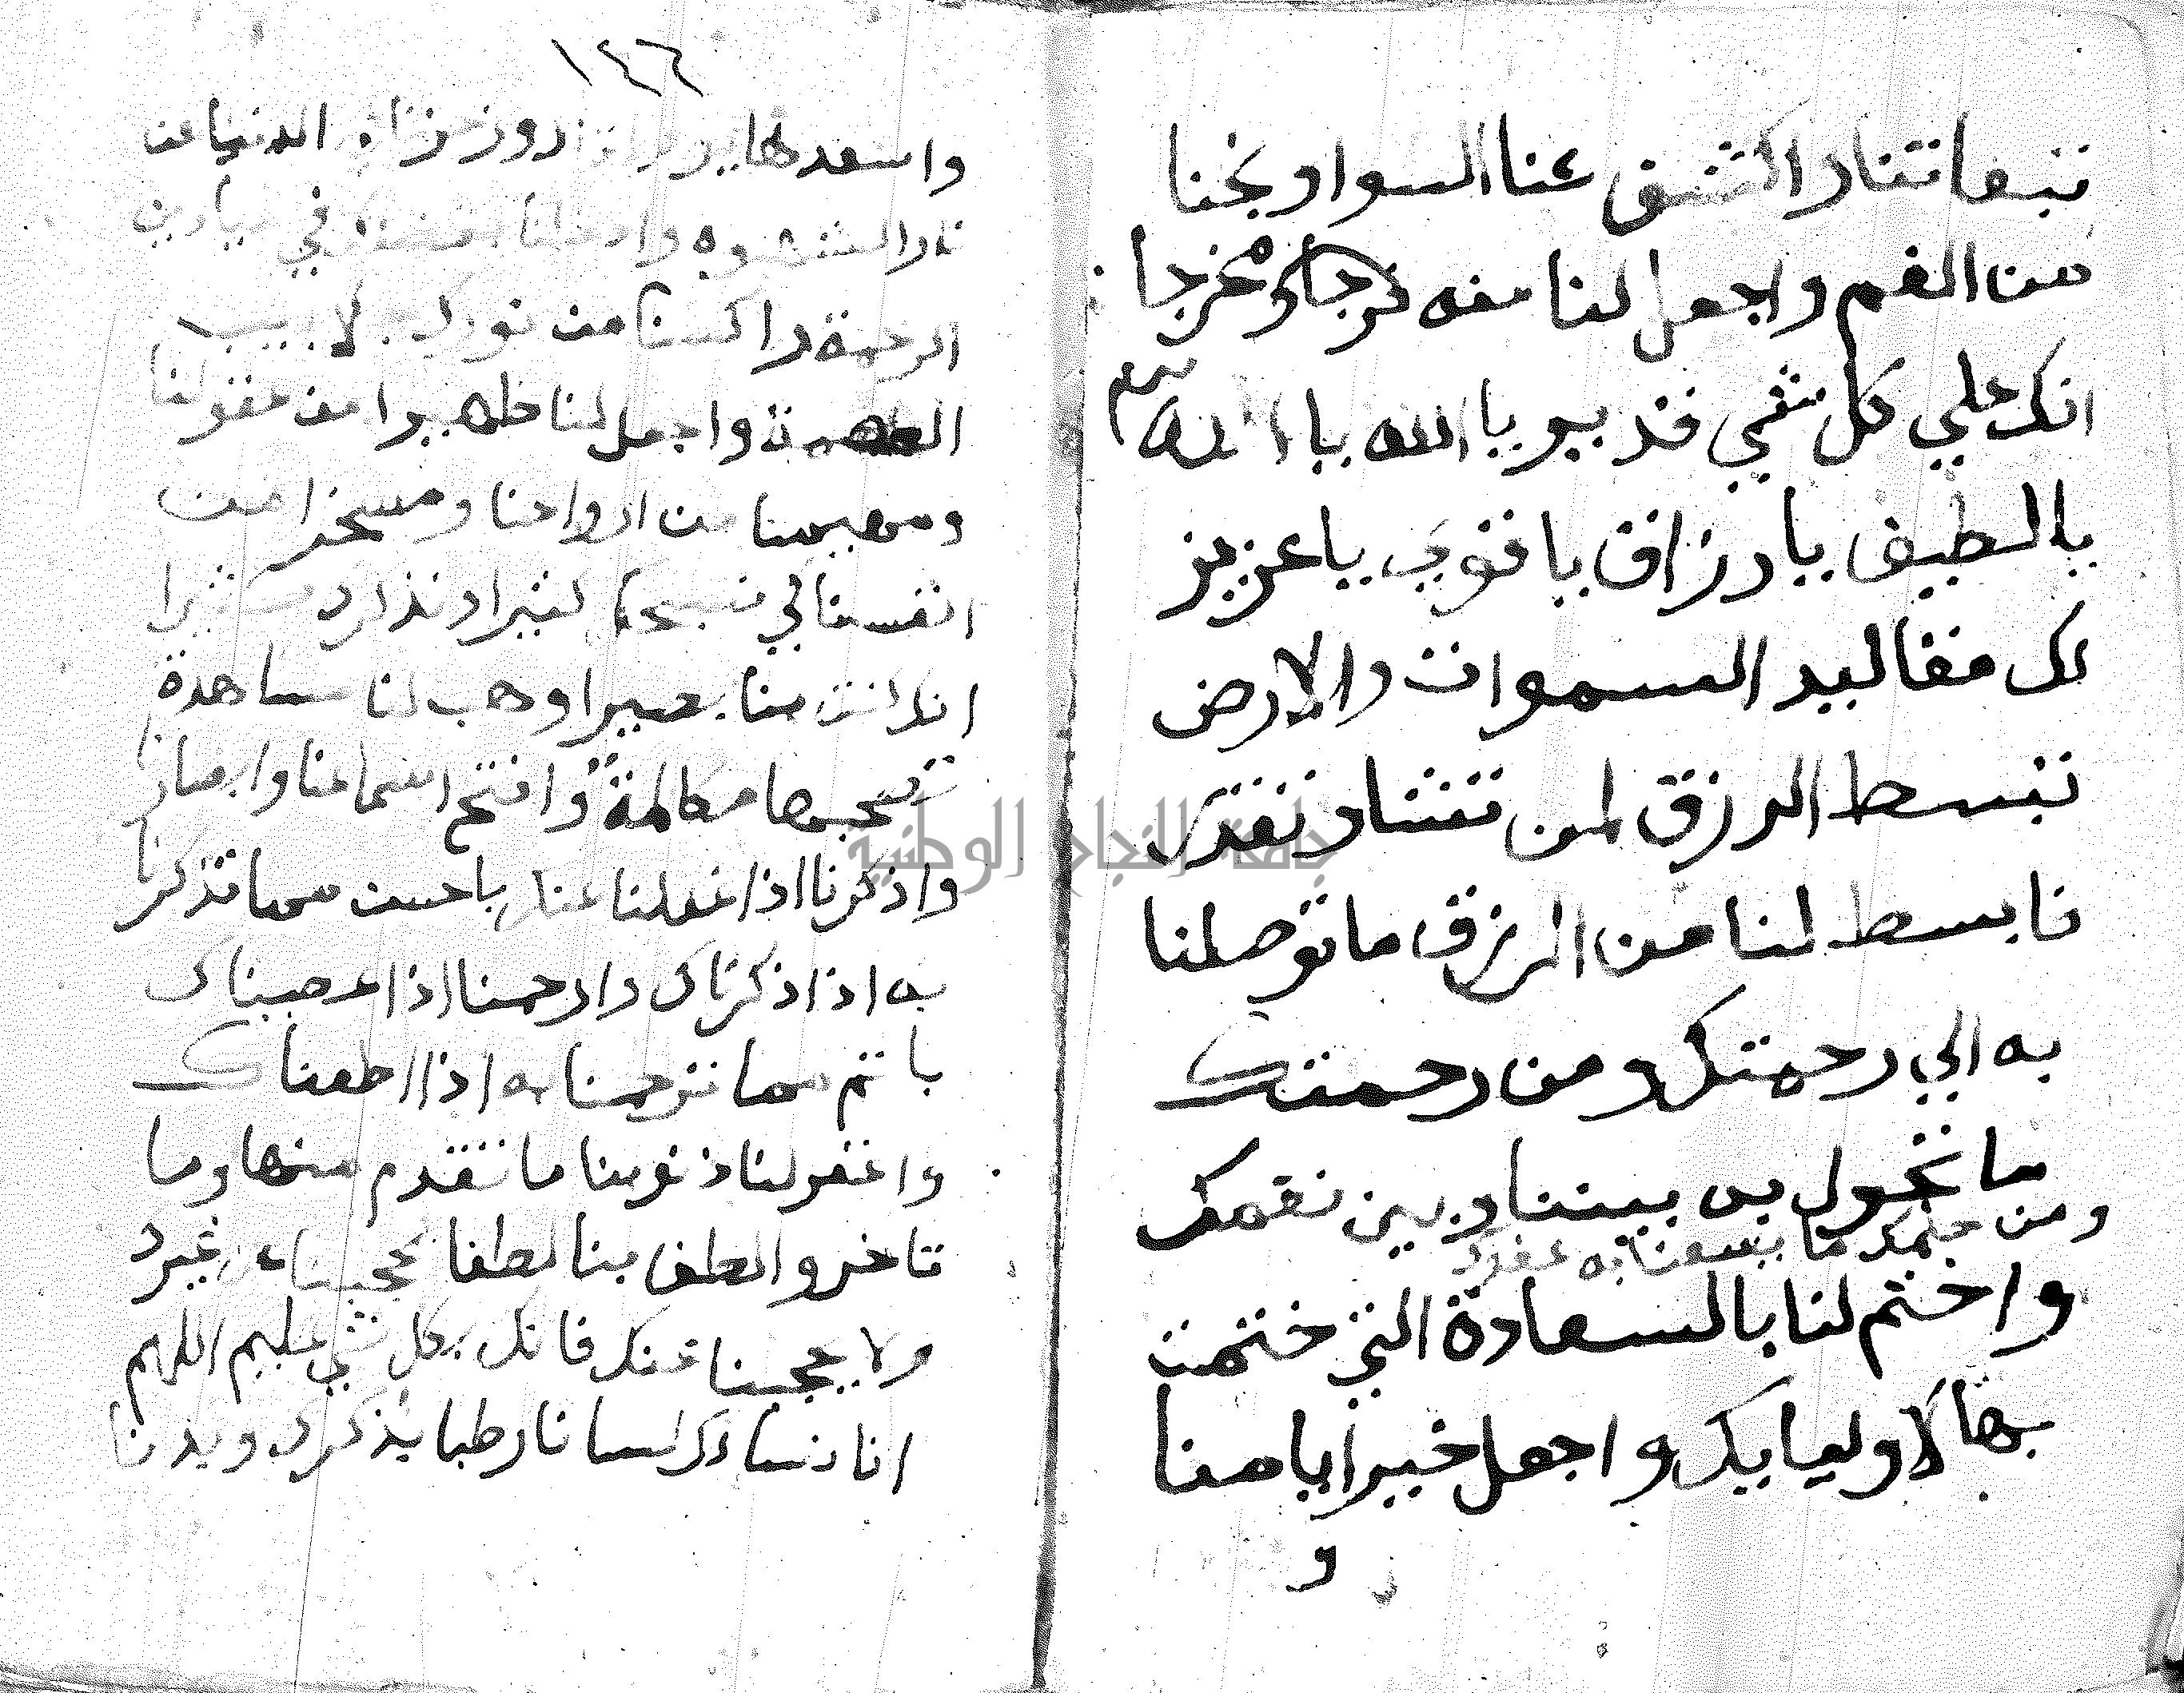 فيما تشا واكشف عنا السوا ونجنا
من الغم واجعل لنا منه فرجا ومخرجا
انك علي كل شي قدير يا الله يا الله
يا لطيف يا رزاق يا قوي يا عزيز
لك مقاليد السموات والارض
تبسط الرزق لمن تشا وتقدر
فابسط لنا من الرزق ما توصلنا
به الي رحمتك ومن رحمتك
ما تحول به بيننا وبين نقمك
ومن حلمك ما يسعنا به عفوك
واختم لنا بالسعادة التي ختمت
بها لاوليايك واجعل خير ايامنا
و
١٤٦
واسعدها الدنيا عن
نار الشهوه وادخلنا بفضلك في ميادين
الرحمة واكسنا من نورك جلابيب
العصمة واجعل لنا ظهيرا من عقولنا
ومهيمنا من ارواحنا ومسخرا من
انفسنا كي نسبحك كثيرا ونذكرك كثيرا
انك كنت بنا بصيرا وهب لنا مشاهدة
تصحبها مكالمة وافتح اسماعنا وابصارنا
واذكرنا اذا غفلنا عنك باحسن مما تذكرنا
به اذا ذكرناك وارحمنا اذا عصيناك
باتم مما ترحمنا به اذا اطعناك
واغفر لنا ذنوبنا ما تقدم منها وما
تاخر والطف بنا لطفا يحجبنا عن غيرك
ولا يحجبنا عنك فانك بكل شي عليم اللهم
انا نسالك لسانا رطبا بذكرك وبدنا
جامعة النجاح الوطنية